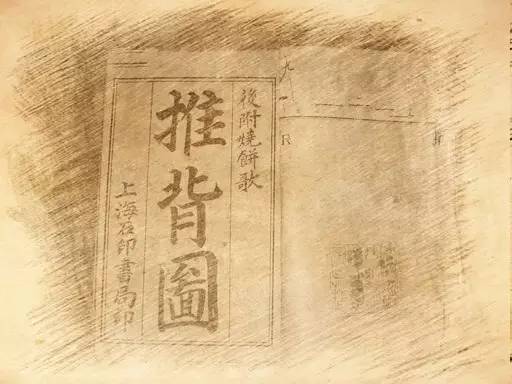 後附燒餅歌
推背圖
上海石印書局印